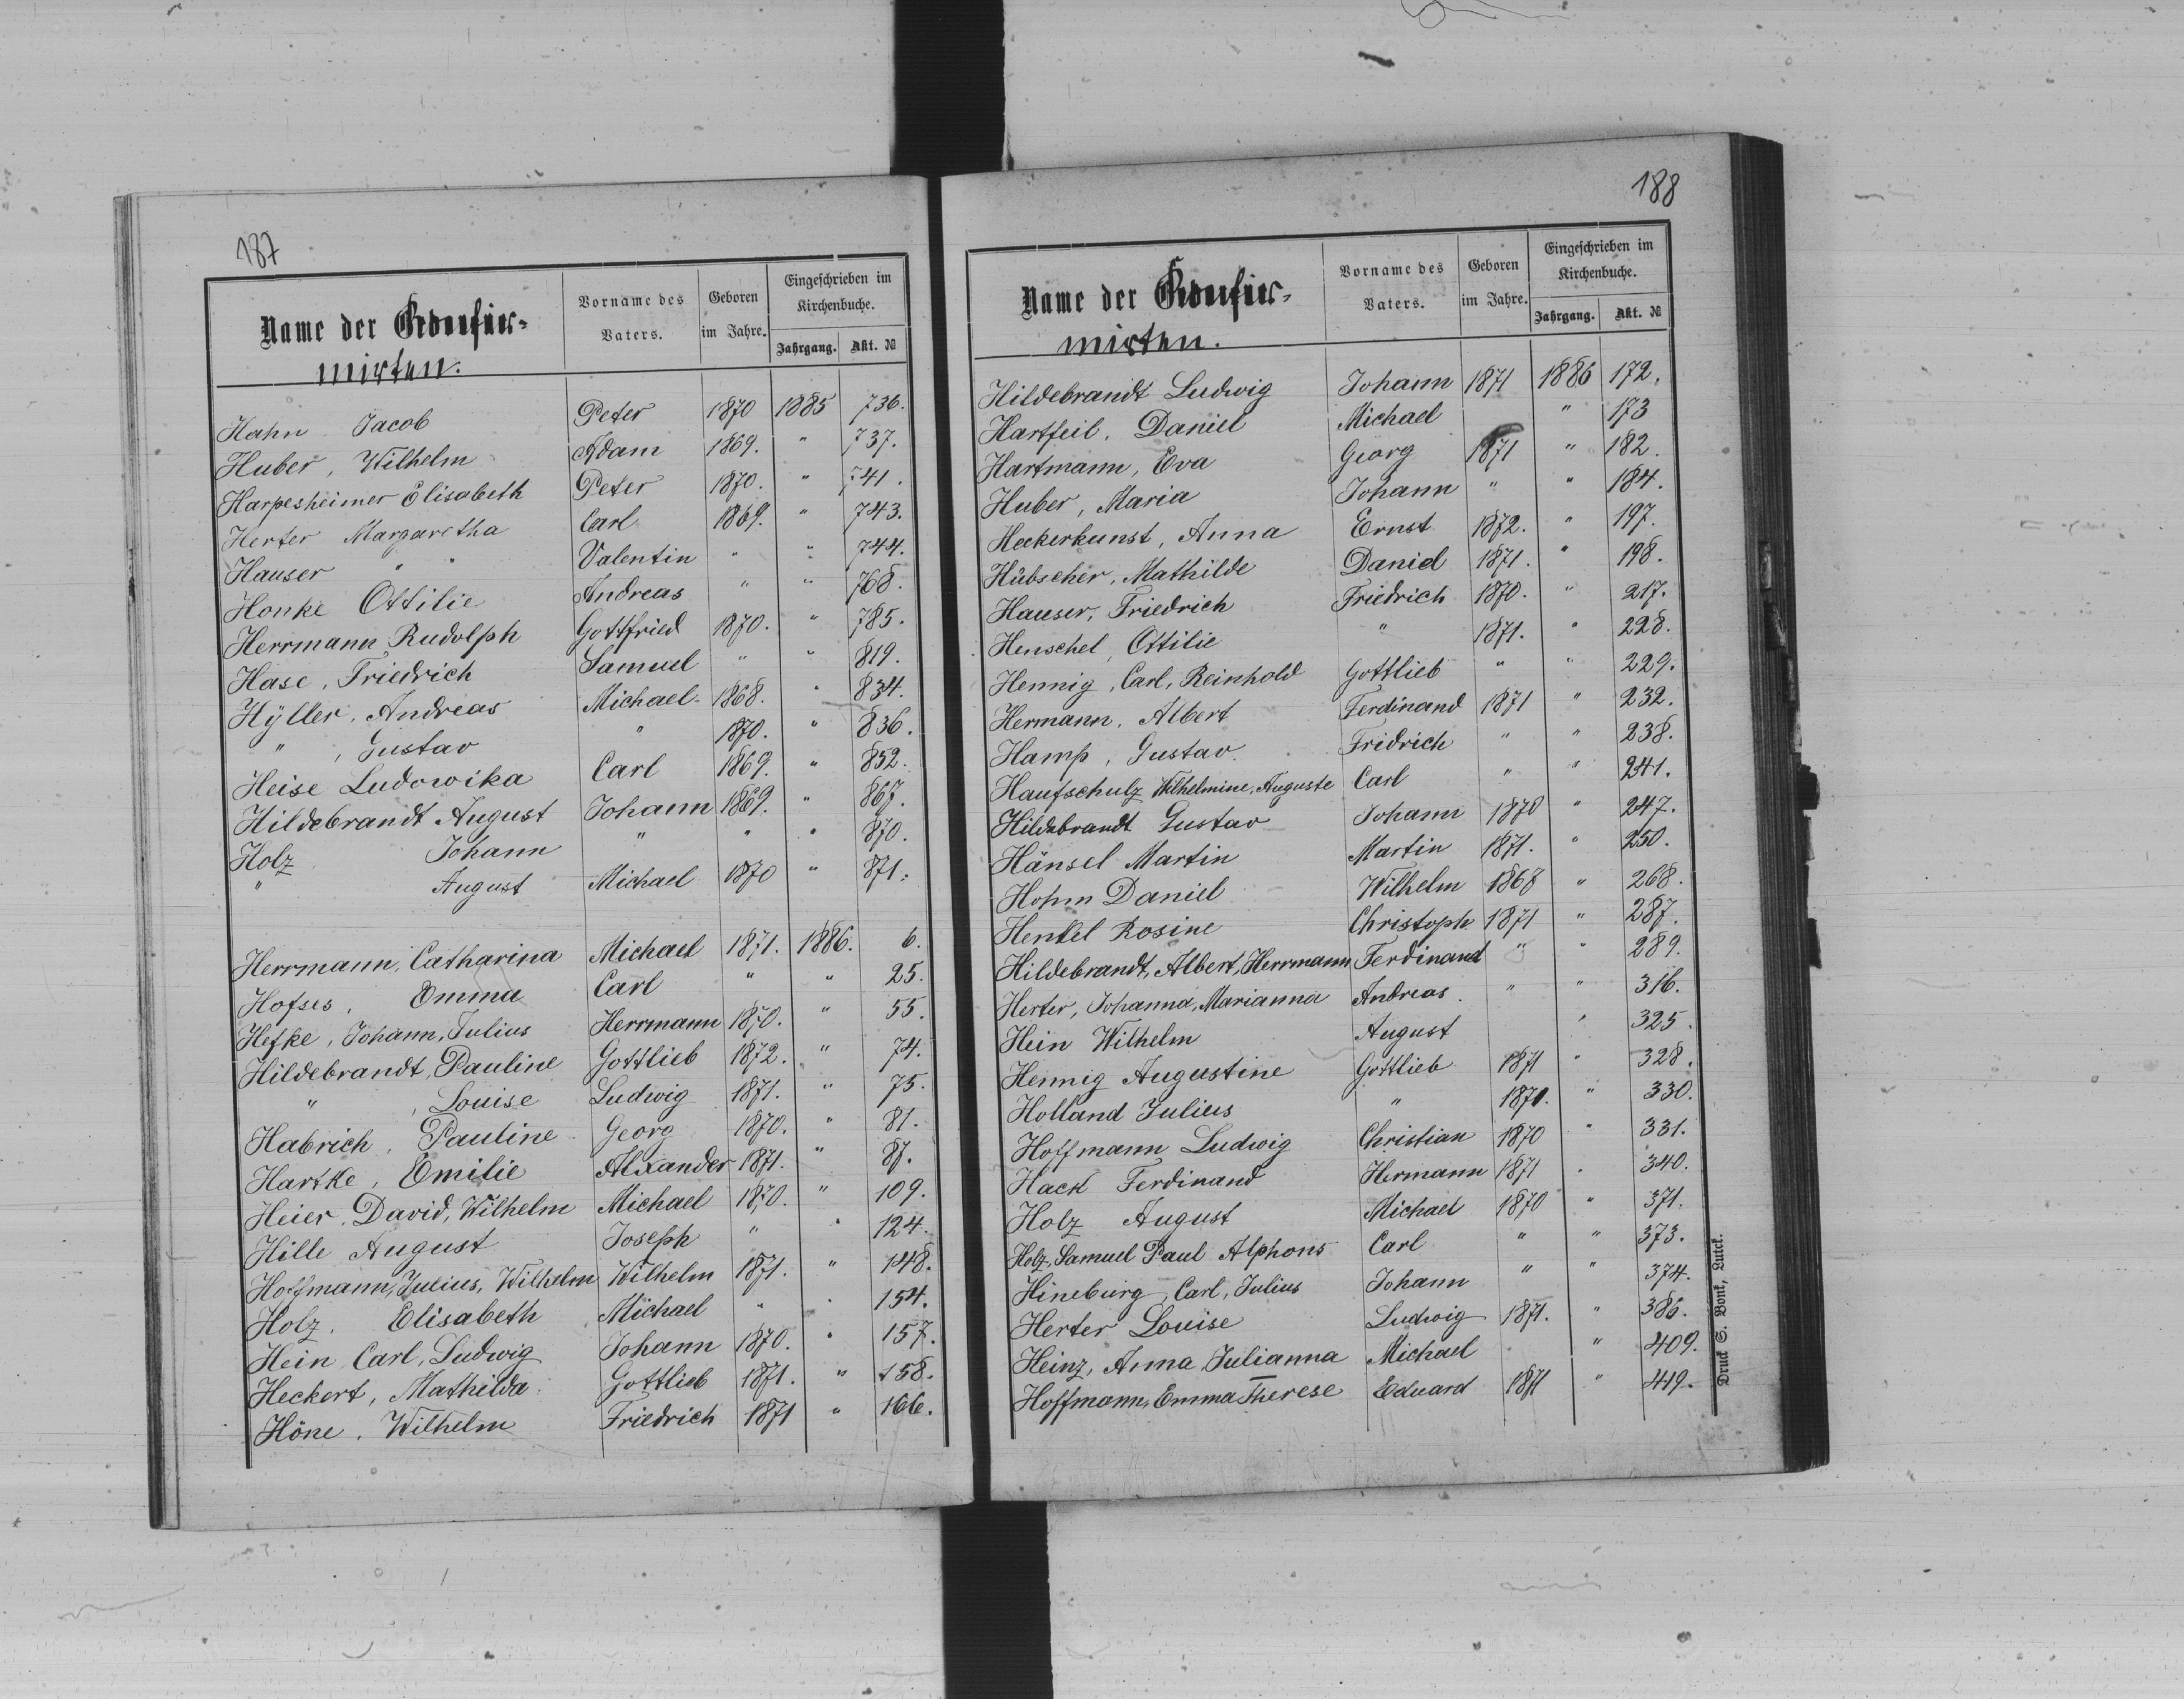 187
Name der Confir-
mirten.
Vorname des Vaters.
Geboren im Jahre.
Eingeschrieben im Kirchenbuche.
Jahrgang. Akt. №
Hahn Jacob Peter 1870 1885 736.
Huber, Wilhelm Adam 1869. " 737.
Harpesheimer Elisabeth Peter 1870. " 741.
Herter Margaretha Carl 1869. " 743.
Hauser " " Valentin " " 744.
Honke Ottilie Andreas " " 768.
Herrmann Rudolph Gottfried 1870. " 785.
Hase, Friedrich Samuel " " 819.
Hÿller, Andreas Michael 1868. " 834.
" , Gustav " 1870. " 836.
Heise Ludowika Carl 1869. " 852.
Hildebrandt August Johann 1869. " 867.
Holz Johann " " " 870.
" August Michael 1870 " 871.
Herrmann, Catharina Michael 1871. 1886. 6.
Hofses, Emma Carl " " 25.
Hefke, Johann, Julius Herrmann 1870. " 55.
Hildebrandt, Pauline Gottlieb 1872. " 74.
" , Louise Ludwig 1871. " 75.
Habrich, Pauline Georg 1870. " 81.
Hartke, Emilie Alexander 1871. " 87.
Heier, David, Wilhelm Michael 1870. " 109.
Hille August Joseph " " 124.
Hoffmann, Julius, Wilhelm Wilhelm 1871. " 148.
Holz, Elisabeth Michael " " 154.
Hein Carl, Ludwig Johann 1870. " 157.
Heckert, Mathilda Gottlieb 1871. " 158.
Höne, Wilhelm Friedrich 1871 " 166.
188
Name der Confir-
mirten.
Vorname des Vaters.
Geboren im Jahre.
Eingeschrieben im Kirchenbuche.
Jahrgang. Akt. №
Hildebrandt Ludwig Johann 1871 1886 172.
Hartfeil, Daniel Michael " 173
Hartmann, Eva Georg 1871 " 182.
Huber, Maria Johann " " 184.
Heckerkunst, Anna Ernst 1872. " 197.
Hübscher, Mathilde Daniel 1871. " 198.
Hauser, Friedrich Friedrich 1870. " 217.
Henschel, Ottilie " 1871. " 228.
Hennig, Carl, Reinhold Gottlieb " " 229.
Hermann, Albert Ferdinand 1871 " 232.
Hamp, Gustav Fridrich " " 238.
Haufschulz Wilhelmine, Auguste Carl " " 241.
Hildebrandt Gustav Johann 1870 " 247.
Hänsel Martin Martin 1871. " 250.
Hohm Daniel Wilhelm 1868 " 268.
Henkel Rosine Christoph 1871 " 287.
Hildebrandt, Albert, Herrmann Ferdinand " " 289.
Herter, Johanna, Marianna Andreas " " 316.
Hein Wilhelm August " 325.
Hennig Augustine Gottlieb 1871 " 328.
Holland Julius " 1870. " 330.
Hoffmann Ludwig Christian 1870 " 331.
Hack Ferdinand Hermann 1871 " 340.
Holz August Michael 1870 " 371.
Holz, Samuel Paul Alphons Carl " " 373.
Hineburg, Carl, Julius Johann " " 374.
Herter Louise Ludwig 1871. " 386.
Heinz, Anna Julianna Michael " 409.
Hoffmann, Emma Therese Eduard 1871 " 419.
Druck S. Bonk, Lutck.